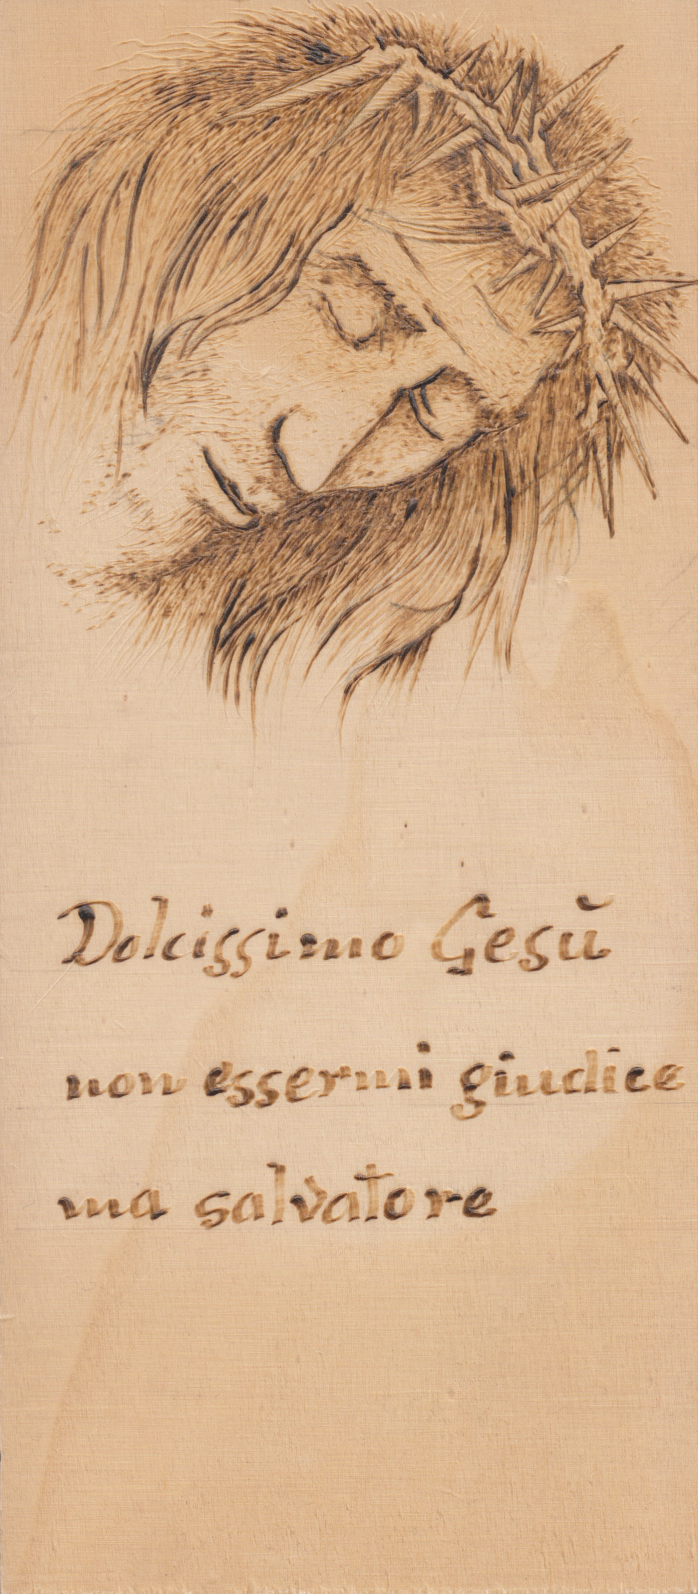 Dolcissimo Gesù
non essermi giudice
ma salvatore